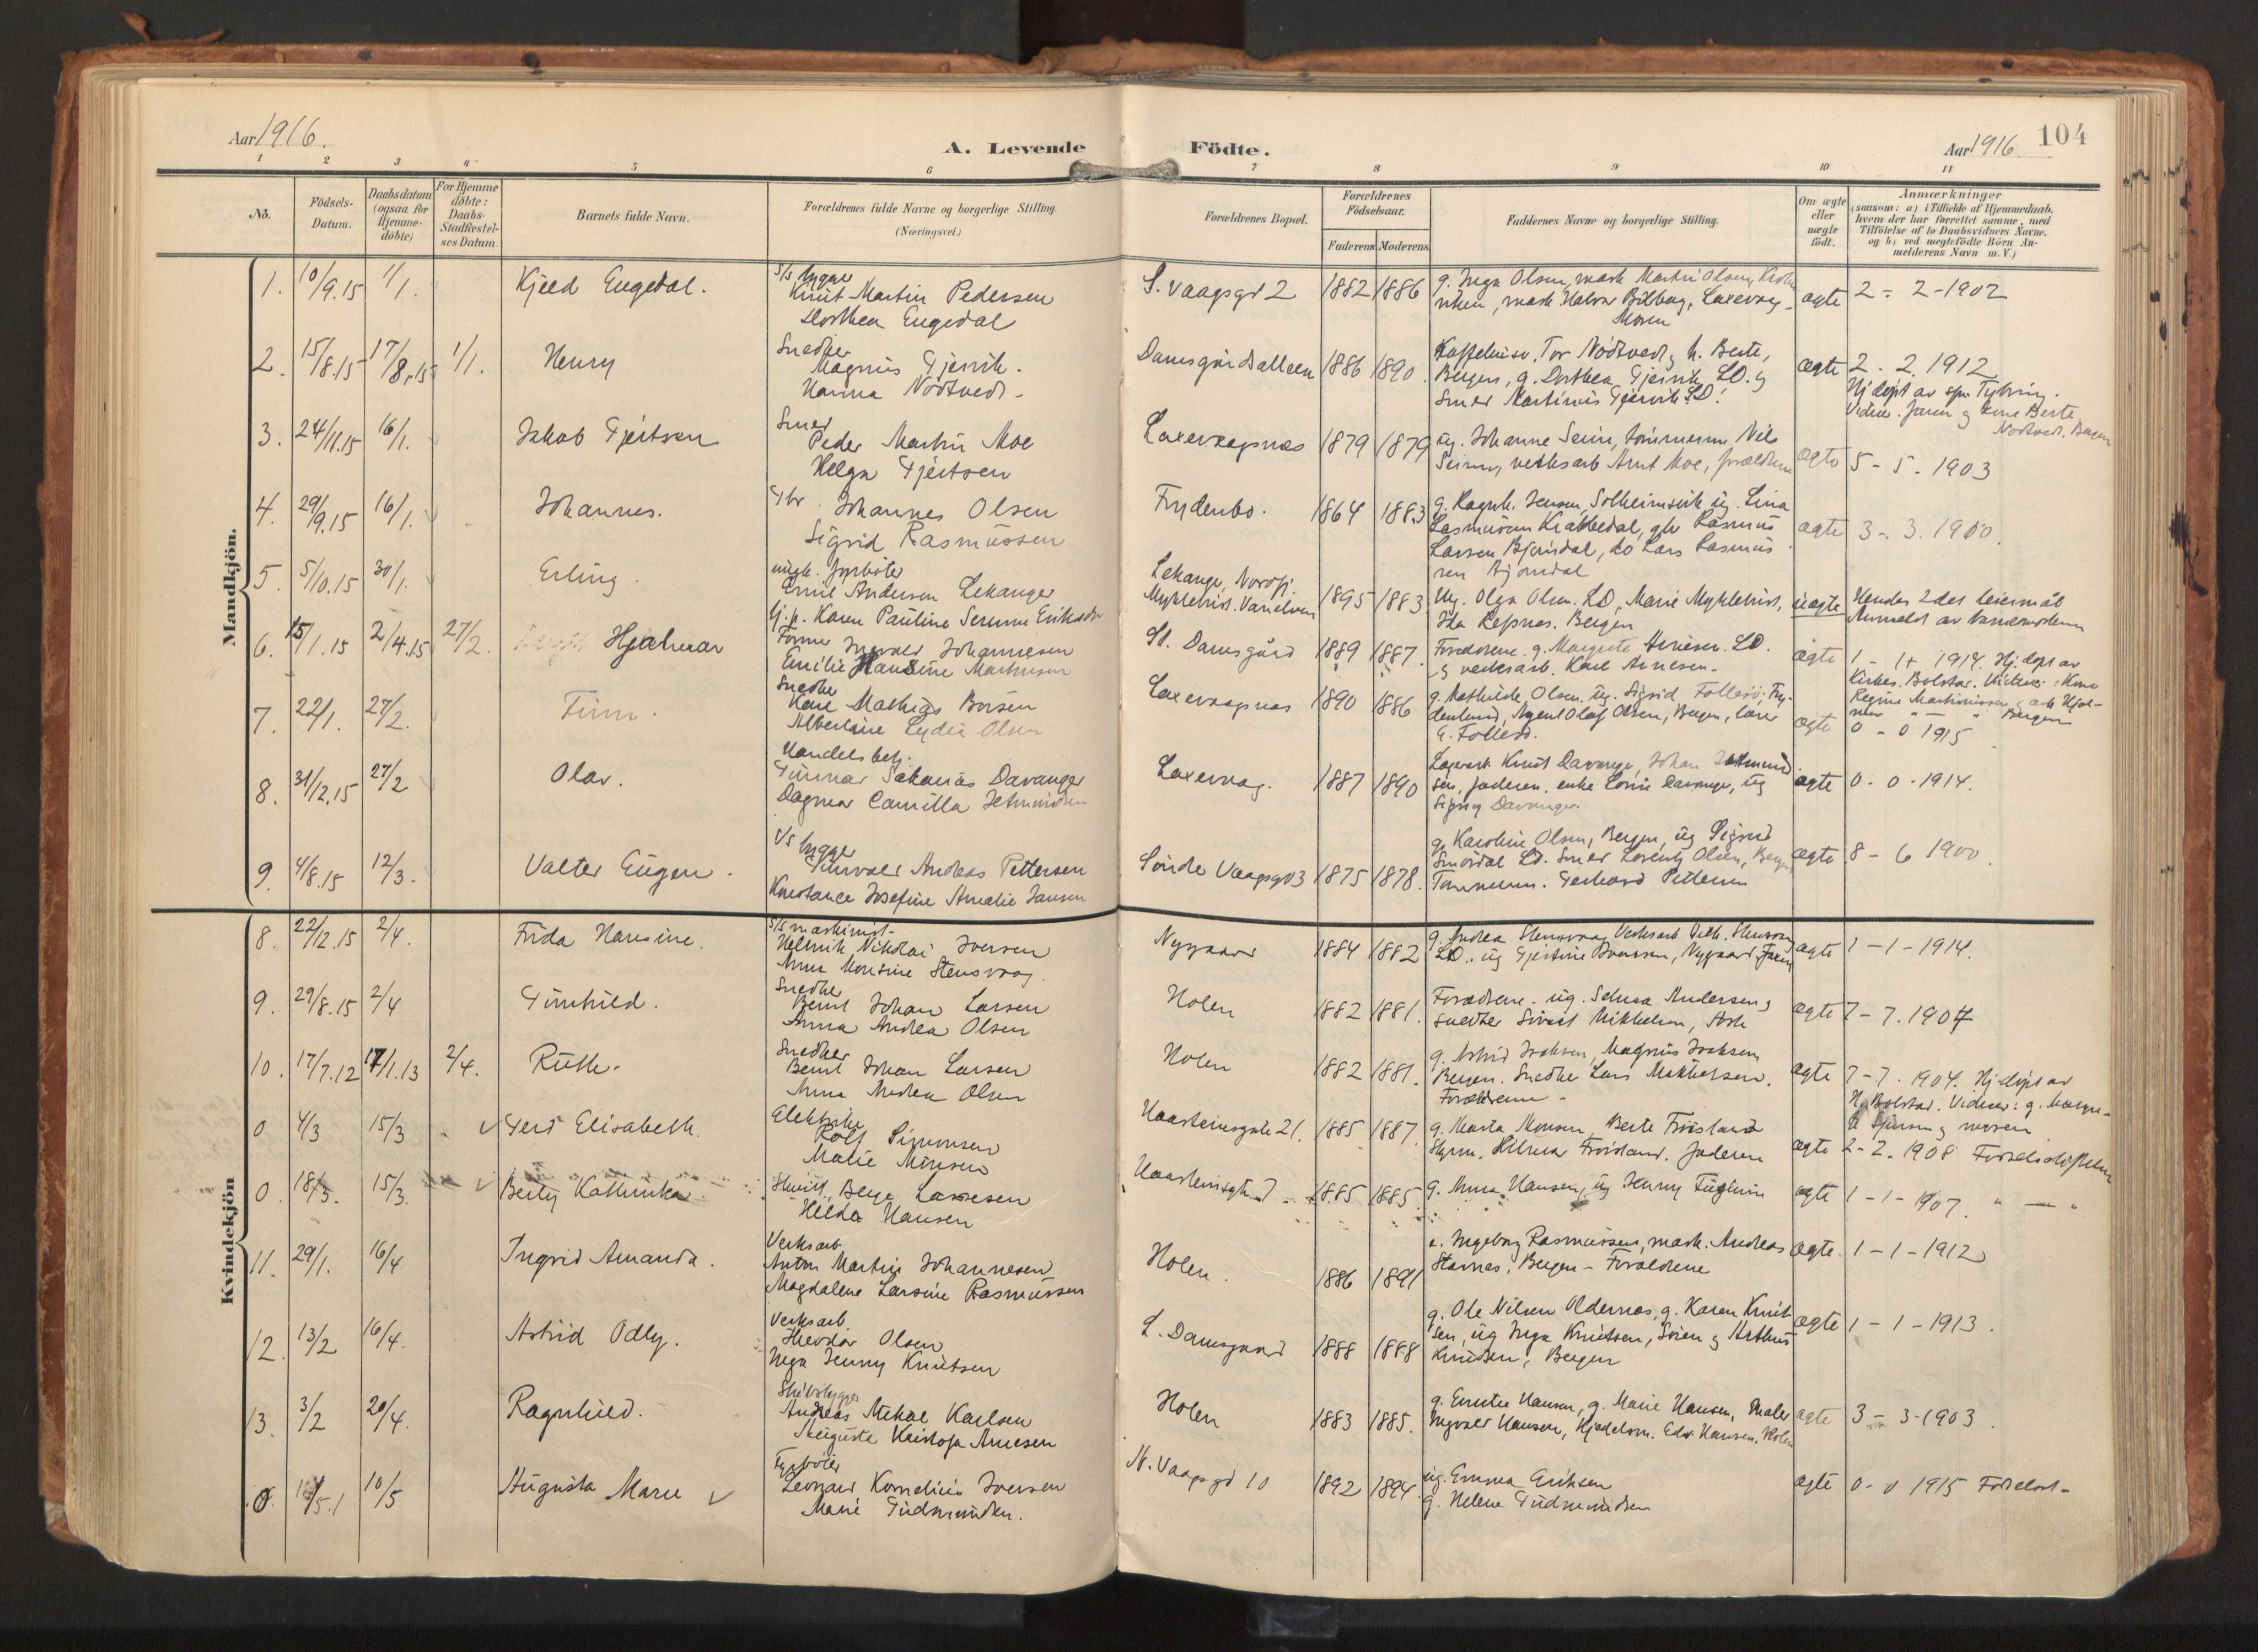 Aar 1916.
A. Levende
Födte.
Aar 1916.
104
1 2 3 4 5 6 7 8 9 10 11
No.
Födsels-Datum.
Daabsdatum (ogsaa för Hjemme-döbte)
For Hjemme döbte: Daabs-Stadfæstel-ses Datum.
Barnets fulde Navn.
Forældrenes fulde Navne og borgerlige Stilling. (Næringsvei.)
Forældrenes Bopæl.
Forældrenes Födselsaar.
Faderens Moderens
Faddernes Navne og borgerlige Stilling.
Om ægte eller uægte födt.
Anmærkninger
(saasom: a) i Tilfælde af Hjemmedaab.
hvem der har forrettet samme, med
Tilföielse af to Daabsvidners Navne.
og b) ved uegtefödte Börn An-
melderens Navn m. V.)
Mandkjön.
1. 10/9.15 1/1. Kjell Engedal.
Knut Martin Pedersen
Dorthea Engedal
S. Vaagsgd 2 1882 1886
g. Inga Olsen, mask Martin Olsen,
Moren
ægte 2 - 2 - 1902
2. 15/8.15 17/8.15 1/1. Henry
Snedker
Magnus Gjervik.
Hanna Nödtvedt.
Damsgårdsalleen 1886 1890.
Tor Nödtvedt, h. Berte,
Bergen, g. Dorthea Gjervik, LD. og
Smed Martinus Gjervik LD.
ægte 2 - 2. 1912
3. 24/11.15 16/1. Jakob Gjertsen
Smed
Peder Martin Moe
Helga Gjertsen
Laxevaagnes 1879 1879
ug. Johanne Seim, tömmerm Nils
Seim, verksarb Arnt Moe, forældrene
ægte 5 - 5 - 1903
4. 29/9.15 16/1. Johannes.
Johannes Olsen
Sigrid Rasmussen
Frydenbo. 1864 1883
g. Ragnh. Jensen, Solheimsvik ug. Lina
Rasmussen Krabbedal, gbr Rasmus
Larsen Bjørndal, do Lars Rasmus
sen Bjørndal
ægte 3 - 3. 1900.
5. 5/10.15 30/1. Erling.
ungk. fyrböter
Emil Andersen Lekanger
Lekanger, Nordfj.
1895 1883
Ug. Olga Olsen. LD, Marie Myklebust,
Ida Refsnes. Bergen
uægte Hendes 2det leiermål
Anmeldt av
6. 15/1.15 2/4.15 27/2. Hjalmar
Former Ingvald Johannesen
Emilie Hansine Martinsen
St. Damsgård 1889 1887.
Forældrene. g. Margrete Arnesen. LD.
og verksarb. Karl Arnesen.
ægte 1 - 1 + 1914. Hj. døpt av
7. 22/1. 27/2. Finn.
Snedker
Karl Mathias Børsen
Albertine Lydie Olsen
Laxevaagnes 1890 1886
g. Mathilde Olsen. ug. Sigrid Follesö, Fry-
denlund, Agent Olaf Olsen, Bergen, lærer
E. Follesö.
ægte 0 - 0 1915
8. 31/12.15 27/2 Olav.
Handelsbetj.
Gunnar Sakarias Davanger
Dagmar Camilla
Laxevaag. 1887 1890
Lagerarb Knut Davanger, Johan
sen, faderen, enke Lovise Davanger, ug
Signy Davanger
ægte 0 - 0 - 1914.
9. 4/8.15 12/3. Valter Eugen.
Thorvald Andreas Pettersen
Konstance Josefine Amalie Jansen
Söndre Vaagsgd 3 1875 1878.
g. Karoline Olsen, Bergen, ug Sigrid
Smördal LD. Smed Lorentz Olsen, Bergen
Tömmerm. Gerhard Pettersen
ægte 8 - 6 1900.
Kvindekjön
8. 22/12.15 2/4. Frida Hansine.
S/S maskinist
Helmik Nikolai Iversen
Anna Monsine Stensvaag.
Nygaard 1884 1882
g. Andrea Stensvaag Verksarb Vilh. Stensvaag
LD., ug Gjertine Iversen, Nygaard
ægte 1 - 1 - 1914.
9. 29/8.15 2/4 Gunhild.
Snedker
Bernt Johan Larsen
Anna Andrea Olsen
Holen 1882 1881.
Forældrene. ug. Selma Andersen og
Snedker Sivert Mikkelsen, Ask
ægte 7 - 7. 1904
10. 17/7.12 17/1.13 2/4. Ruth.
Snedker
Bernt Johan Larsen
Anna Andrea Olsen
Holen 1882 1881.
g. Astrid Isaksen, Magnus Isaksen
Bergen. Snedker Lars Mikkelsen.
Forældrene -
ægte 7 - 7. 1904. Hj. døpt av
0 4/3 15/3 Gerd Elisabeth.
Elektriker
Rolf Simonsen
Malie Monsen
Haasteinsgate 21. 1885 1887.
g. Marta Monsen, Berte Fröisland
Styrm. Hilmar Fröisland. Faderen
ægte 2 - 2. 1908 Fødselsstiftelsen
0. 18/3. 15/3. Betsy Kathinka.
Birger Lauritsen
Helda Hansen
Haasteinsgate 7 1885 1885
g. Anna Hansen, ug Jenny
ægte 1 - 1 - 1907. " — "
11. 29/1. 16/4 Ingrid Amanda.
Verksarb.
Anton Martin Johannesen
Magdalene Larsine Rasmussen
Holen. 1886 1891
e. Ingeborg Rasmussen, mask. Andreas
Starnes, Bergen - Forældrene
ægte. 1 - 1 - 1912
12. 13/2 16/4. Astrid Odly.
Verksarb.
Theodor Olsen
Inga Jenny Knutsen
L. Damsgaard 1888 1888
g. Ole Nilsen Oldernes, g. Karen Knut
sen, ug Inga Knutsen, Sören og Arthur
Knudsen, Bergen
ægte 1 - 1 - 1913.
13. 3/2 20/4. Ragnhild.
Skibsbygger
Andreas Mikal Karlsen
Augusta Kristofa Arnesen
Holen 1883 1885.
g. Emilie Hansen, g. Marie Hansen, Maler
Ingvald Hansen, Kjedelsm. Edv. Hansen, Holen
ægte 3 - 3 - 1903.
0. 10/5 Augusta Marie
Fyrböter
Leonard Kornelius Iversen
Marie Gudmundsen.
N. Vaagsgd 10 1892 1894.
ug. Emma Eriksen
g. Helene Gudmundsen
ægte 0 - 0 1915 Fødselsst-